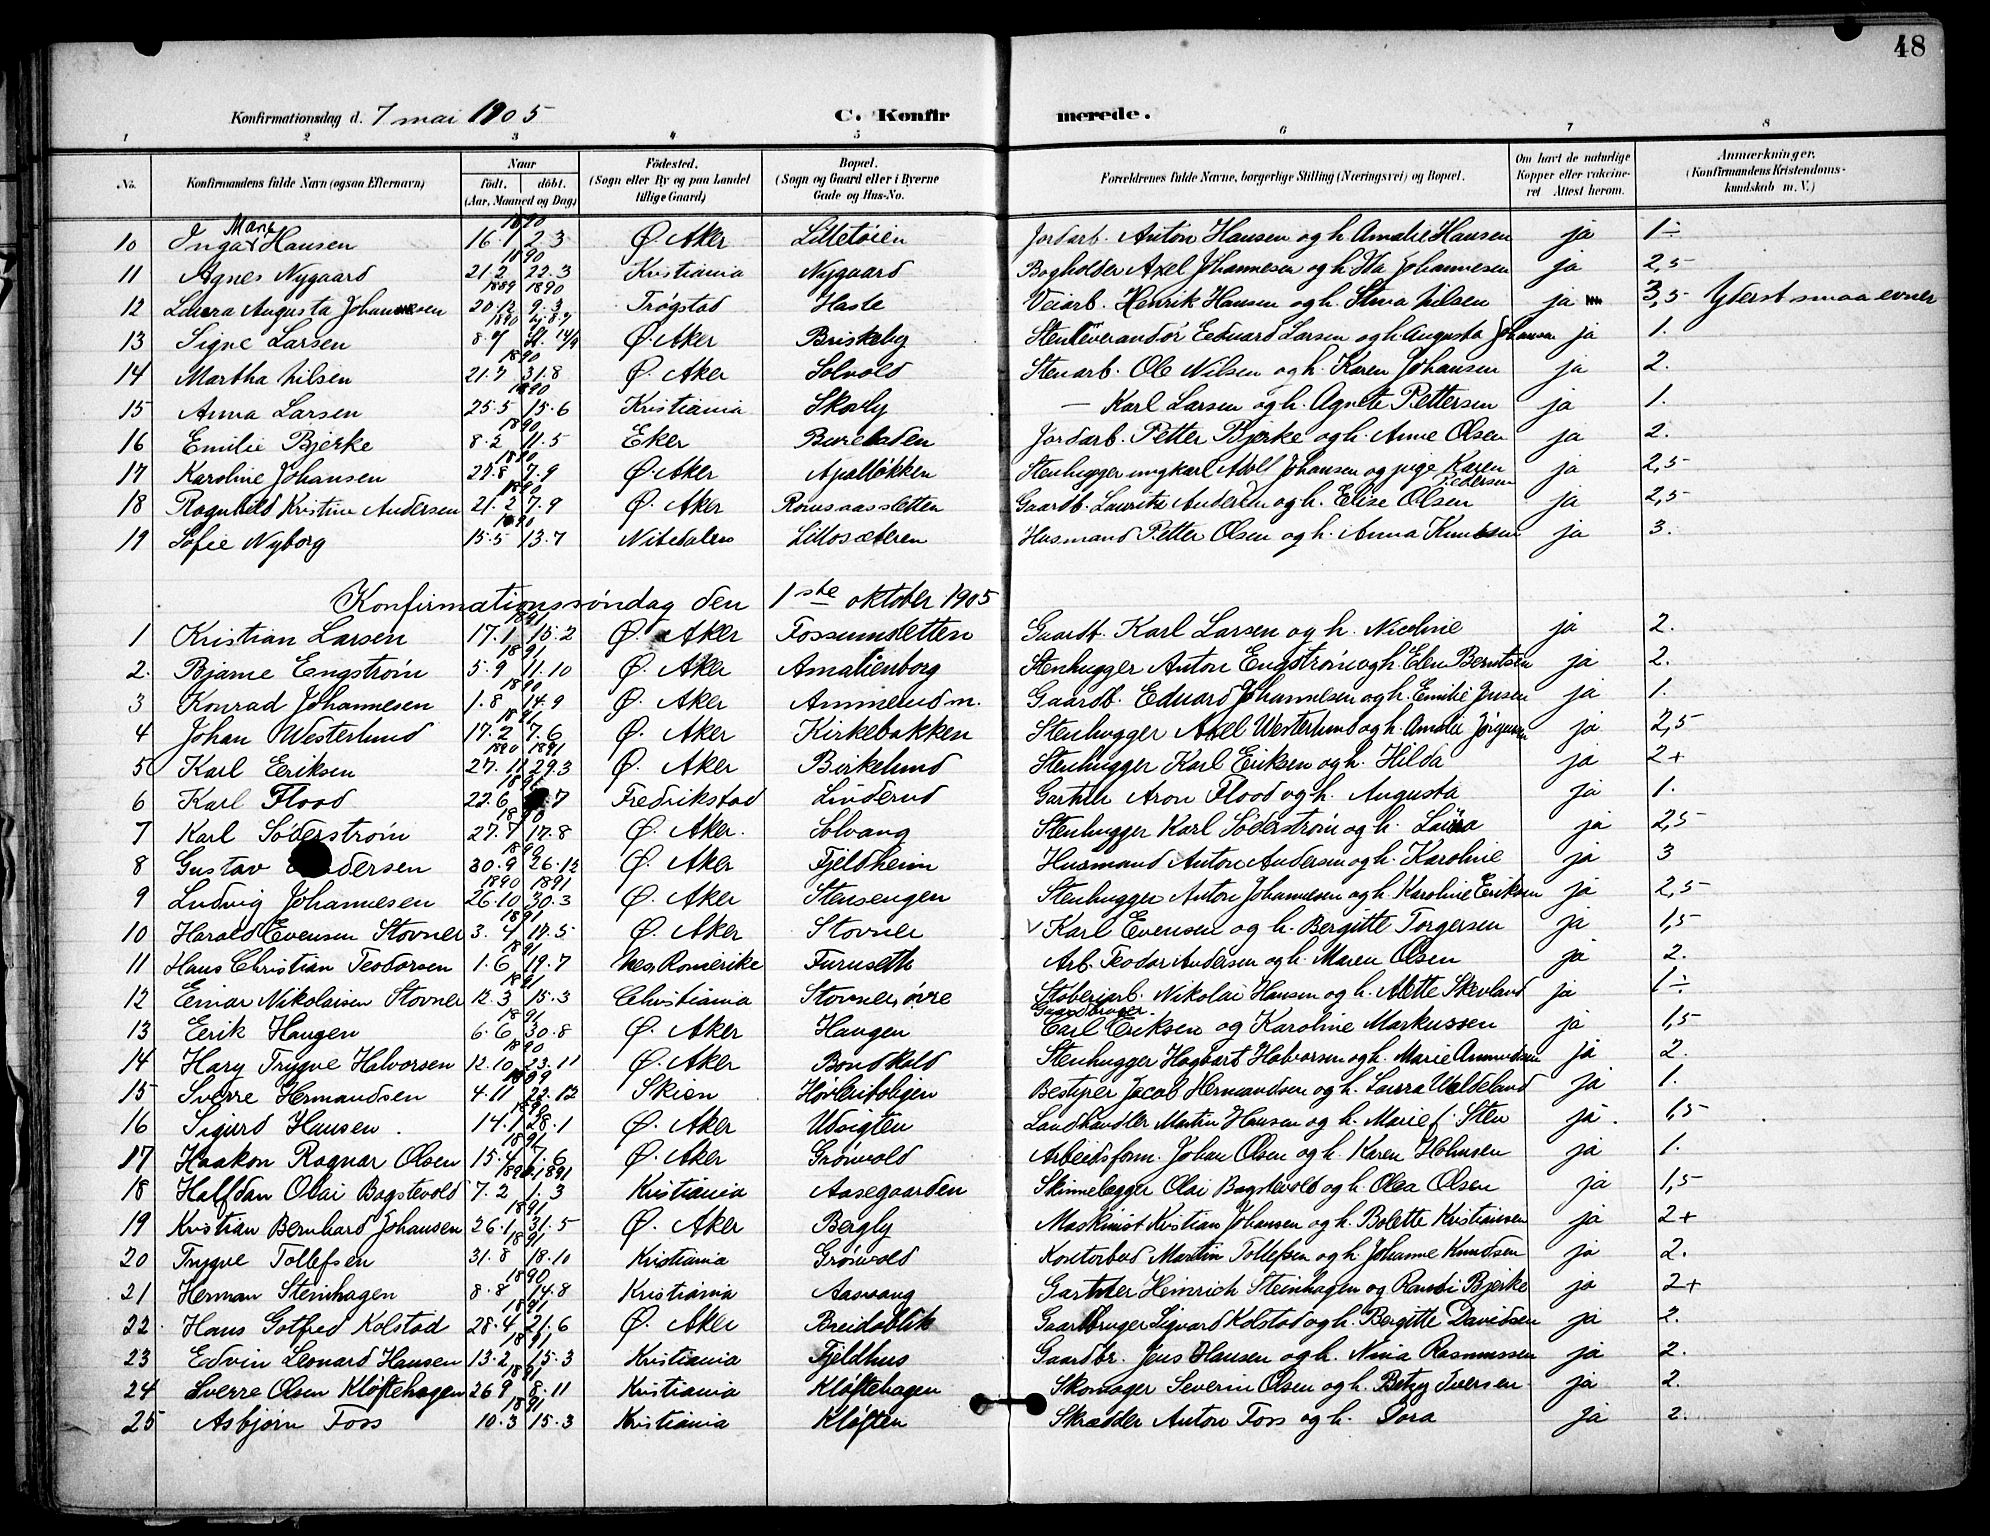 48
Konfirmationsdag d. 7 mai 1905 C. Konfirmerede.
1 2 3 4 5 6 7 8
No. Konfirmandens fulde Navn (ogsaa Efternavn) Naar födt. döbt. (Aar, Maaned og Dag) Födested. (Sogn eller By og paa Landet tillige Gaard) Bopæl. (Sogn og Gaard eller i Byerne Gade og Hus-No. Forældrenes fulde Navne, borgerlige Stilling (Næringsvei) og Bopæl. Om havt de naturlige Kopper eller vakcineret Attest herom. Anmærkninger. (Konfirmandens Kristendomskundskab m. V.)
10 Inga Marie Hansen 1890 16.1 2.3 Ø. Aker Lilletøien Jordarb. Anton Hansen og h. Amalie Hansen ja 1÷
11 Agnes Nygaard 1890 21.2 22.3 Kristiania Nygaard Bogholder Axel Johannesen og h. Ida Johannesen ja 2,5
12 Laura Augusta Johannesen 1889 1890 20.12 9.3 Trøgstad Hasle Veiarb. Henrik Hansen og h. Stina Nilsen ja 3,5 Yderst smaa evner
13 Signe Larsen 1890 8.7 Ø. Aker Briskeby Stenleverandør Eduard Larsen og h. Augusta Johansen ja 1.
14 Martha Nilsen 1890 21.7 31.8 Ø. Aker Solvold Stenarb. Ole Nilsen og h. Karen Johansen ja 2.
15 Anna Larsen 1890 25.5 15.6 Kristiania Skovly — Karl Larsen og h. Agnete Pettersen ja 1.
16 Emilie Bjerke 1890 8.2 11.5 Eker Jordarb. Petter Bjerke og h. Anne Olsen ja 2.
17 Karoline Johansen 1890 7.9 Ø. Aker Apalløkken Stenhugger ungkarl Adolf Johansen og pige Karen Pedersen ja 2,5
18 Ragnhild Kristine Andersen 1890 21.2 7.9 Ø. Aker Romsaassletten Gaardb. Lauritz Andersen og h. Elise Olsen ja 2,5
19 Sofie Nyborg 1890 15.5 13.7 Nitedalen Lillosæteren Husmand Petter Olsen og h. Anna Knudsen ja 3.
Konfirmationssøndag den 1ste oktober 1905
1 Kristian Larsen 1891 17.1 15.2 Ø. Aker Fossumsletten Gaardb. Karl Larsen og h. Nicoline ja 2.
2. Bjarne Engstrøm 1891 5.9 11.10 Ø. Aker Amalienborg Stenhugger Anton Engstrøm og h. Elen Berntsen ja 2.
3 Konrad Johannesen 1890 1.8 14.9 Ø. Aker Ammerud m. Gaardb. Eduard Johannesen og h. Emilie Jensen ja 1.
4 Johan Westerlund 1891 17.2 7.6 Ø. Aker Kirkebakken Stenhugger Axel Westerlund og h. Amalie Jørgensen ja 2,5
5 Karl Eriksen 1890 1891 27.11 29.3 Ø. Aker Birkelund Stenhugger Karl Eriksen og h. Hilda ja 2+
6 Karl Flood 22.6 .7 Fredrikstad Linderud Gartner Aron Flood og h. Augusta ja 1.
7 Karl Söderstrøm 1890 27.7 17.8 Ø. Aker. Solvang Stenhugger Karl Söderstrøm og h. Laura ja 2,5
8 Gustav Andersen 1890 30.9 26.12 Ø. Aker Fjeldheim Husmand Anton Andersen og h. Karoline ja 3
9 Ludvig Johannesen 1890 1891 26.10 30.3 Ø. Aker Stensengen Stenhugger Anton Johannesen og h. Karoline Eriksen ja 2,5
10 Harald Evensen Stovner 1891 3.4 17.5 Ø. Aker Stovner Karl Evensen og h. Bergitte Torgersen ja 1,5
11 Hans Christian Teodorsen 1891 1.6 19.7 Nes, Romerike Furuseth Arb. Teodor Andersen og h. Maren Olsen ja 2.
12 Einar Nikolaisen Stovner 1891 12.3 15.3 Christiania Stovner, øvre Støberiarb. Nikolai Hansen og h. Alette Skevland ja 1÷
13 Eerik Haugen 1891 6.6 30.8 Ø. Aker Haugen Gaardbruger. Carl Eriksen og Karoline Markussen ja 1,5
14 Hary Trygve Halvorsen 1890 12.10 23.11 Ø. Aker Bondkald Stenhugger Hagbart Halvorsen og h. Marie Amundsen ja 2.
15 Sverre Hermandsen 1889 4.11 22.12 Skien Høvleriboligen Bestyrer Jacob Hermandsen og h. Laura Waldeland ja 1.
16 Sigurd Hansen. 1890 14.1 28.1 Ø. Aker Udsigten Landhandler Martin Hansen og h. Marie f. Sten ja. 1,5
17 Haakon Ragnar Olsen 1891 15.4 7.6 Ø. Aker Grønvold Arbeidsform. Johan Olsen og h. Karen Hohnsen ja 1.
18 Halfdan Olai Bagstevold 1891 7.2 1.3 Kristiania Aasegaarden Skinnelægger Olai Bagstevold og h. Olea Olsen ja 1,5
19 Kristian Bernhard Johansen 1891 26.1 31.5 Ø. Aker Bergly Maskinist Kristian Johansen og h. Bolette Kristiansen ja 2+
20 Trygve Tollefsen 1891 31.8 18.10 Kristiania Grønvold Kontorbud Martin Tollefsen og h. Johanne Knudsen ja 2.
21 Herman Steinhagen 1890 8.8 14.8 Kristiania Aasvang Gartner Heinrich Steinhagen og Randi Bjerke ja 2+
22. Hans Gotfred Kolstad 1891 28.4 21.6 Ø. Aker Breidablik Gaardbruger Sigvard Kolstad og h. Bergitte Davidsen ja 2.
23 Edvin Leonard Hansen 1891 13.2 15.3 Kristiania Fjeldhus Gaardbr. Jens Hansen og h. Nina Rasmussen ja 2.
24 Sverre Olsen Kløftehagen 1891 26.9 8.11 Kristiania Kløftehagen Skomager Severin Olsen og h. Betzy Iversen ja 2.
25 Asbjørn Foss 1891 10.3 15.3 Kristiania Kløften Skrædder Anton Foss og h. Dora ja 2.